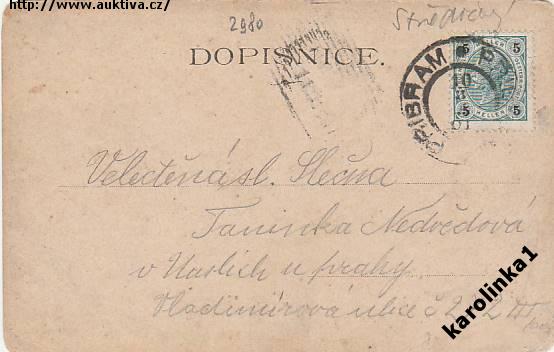 http://www.auktiva.cz/
2980
Středický
DOPISNICE.
PŘIBRAM
10
5
5
HELLER
5
5
Veledctěná sl. Slečna
Taninka Nedvědová
v Nuslich u prahy
Vladimirová ulice č 212 III
karolinka1